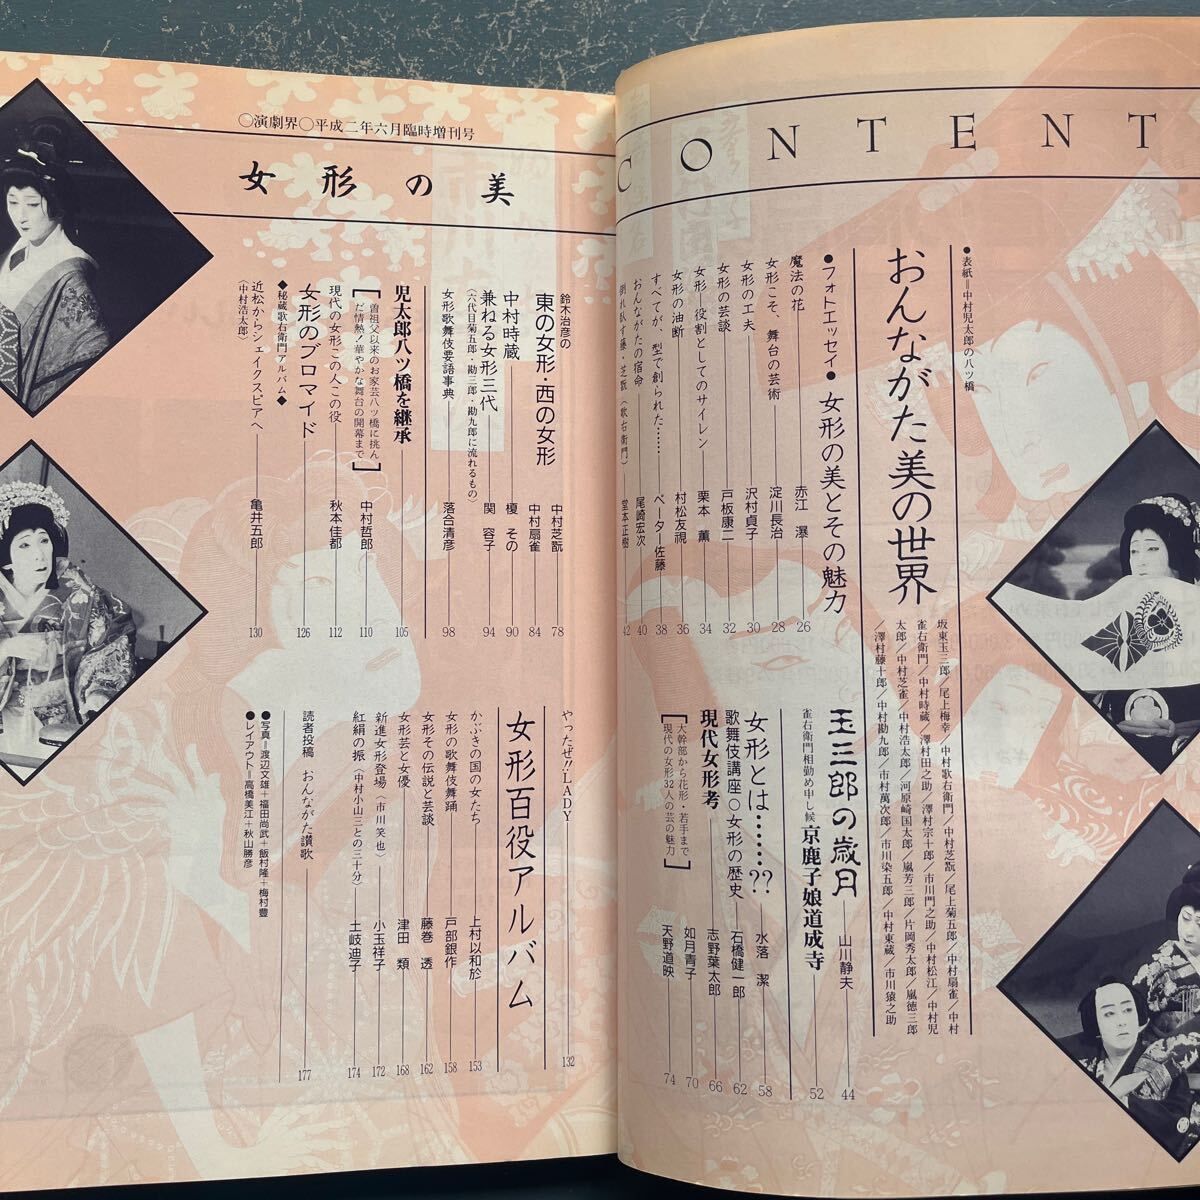 CONTENT
●表紙=中村児太郎の八ツ橋
おんながた美の世界
坂東玉三郎/尾上梅幸/中村歌右衛門/中村芝翫/尾上菊五郎/中村扇雀/中村
雀右衛門/中村時蔵/澤村田之助/澤村宗十郎/市川門之助/中村松江/中村児
太郎/中村芝雀/中村浩太郎/河原崎国太郎/嵐芳三郎/片岡秀太郎/嵐徳三郎
/澤村藤十郎/中村勘九郎/市村萬次郎/市川染五郎/中村東蔵/市川猿之助
●フォトエッセイ●女形の美とその魅力
魔法の花 赤江 瀑 26
女形こそ、舞台の芸術 淀川長治 28
女形の工夫 沢村貞子 30
女形の芸談 戸板康二 32
女形―役割としてのサイレン 栗本 薫 34
女形の油断 村松友視 36
すべてが、型で創られた…… ペーター佐藤 38
おんながたの宿命 尾崎宏次 40
倒れ臥す藤・芝翫(歌右衛門) 堂本正樹 42
玉三郎の歳月 山川静夫 44
雀右衛門相勤め申し候 京鹿子娘道成寺 52
女形とは……?? 水落 潔 58
歌舞伎講座○女形の歴史 石橋健一郎 62
現代女形考 志野葉太郎 66
[大幹部から花形・若手まで
現代の女形32人の芸の魅力]
如月青子 70
天野道映 74
○演劇界○平成二年六月臨時増刊号
女形の美
鈴木治彦の
東の女形・西の女形 中村芝翫 78
中村扇雀 84
中村時蔵 榎 その 90
兼ねる女形三代 関 容子 94
(六代目菊五郎・勘三郎・勘九郎に流れるもの)
女形歌舞伎要語事典 落合清彦 98
児太郎八ツ橋を継承 105
[曽祖父以来のお家芸八ツ橋に挑ん
だ情熱!華やかな舞台の開幕まで]
中村哲郎 110
現代の女形この人この役 秋本佳都 112
女形のブロマイド 126
◆秘蔵歌右衛門アルバム◆
近松からシェイクスピアへ 亀井五郎 130
(中村浩太郎)
やったぜ!!LADY 132
女形百役アルバム
かぶきの国の女たち 上村以和於 153
女形の歌舞伎舞踊 戸部銀作 158
女形その伝説と芸談 藤巻 透 162
女形芸と女優 津田 類 168
新進女形登場(市川笑也) 小玉祥子 172
紅絹の振(中村小山三との三十分) 土岐迪子 174
読者投稿 おんながた讃歌 177
●写真=渡辺文雄+福田尚武+飯村隆+梅村豊
●レイアウト=高橋美江+秋山勝彦